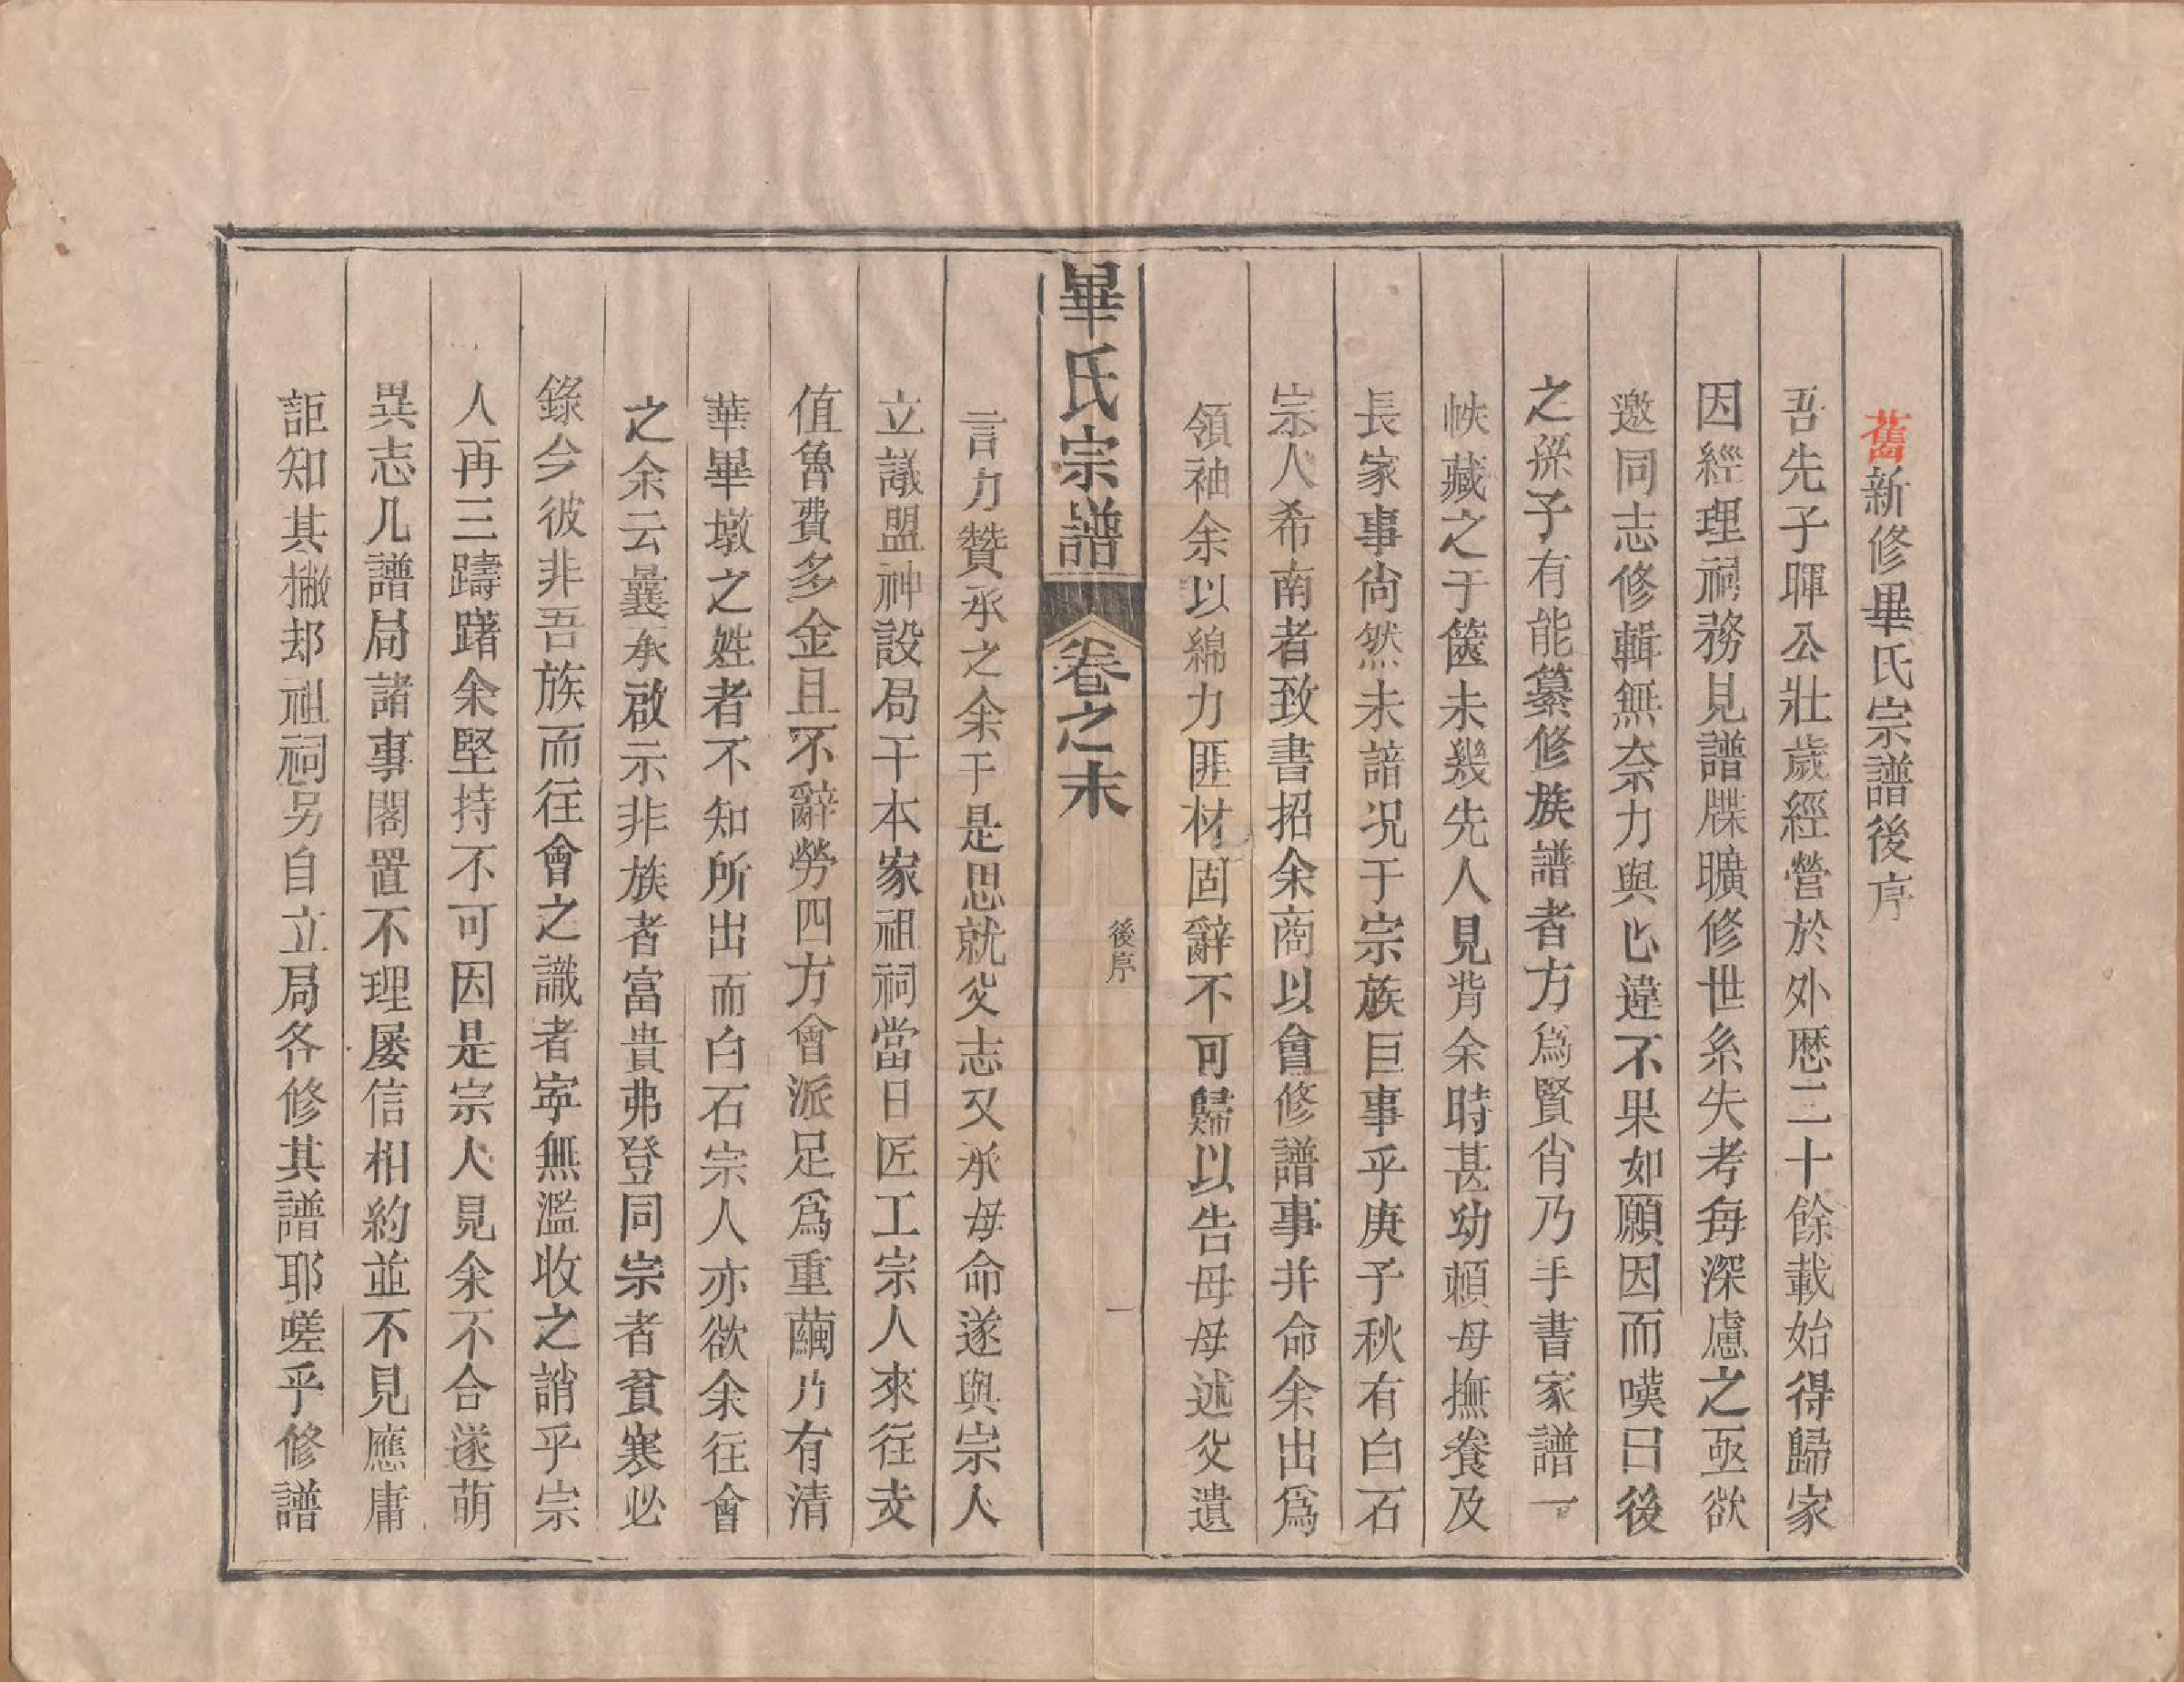 舊新修畢氏宗譜後序
吾先子暉公壯歲經營於外歴二十餘載始得歸家
因經理祠務見譜牒曠修世糸失考每深慮之亟欲
邀同志修輯無奈力與心違不果如願因而嘆曰後
之孫子有能纂修族譜者方爲賢肖乃手書家譜一
帙藏之于篋未幾先人見背余時甚幼頼母撫養及
長家事尙然未諳况于宗族巨事乎庚子秋有白石
宗人希南者致書招余商以會修譜事并命余出爲
領袖余以綿力匪材固辭不可歸以告母母述父遺
畢氏宗譜 卷之末 後序 一
言力贊承之余于是思就父志又承母命遂與宗人
立議盟神設局于本家祖祠當日匠工宗人來往支
值魯費多金且不辭勞四方會派足爲重繭乃有清
華畢墩之姓者不知所出而白石宗人亦欲余往會
之余云曩承啟示非族者富貴弗登同宗者貧寒必
錄今彼非吾族而往會之識者寕無濫收之誚乎宗
人再三躊躇余堅持不可因是宗人見余不合遂萌
異志凡譜局諸事閣置不理屡信相約並不見應庸
詎知其撇却祖祠另自立局各修其譜耶嗟乎修譜